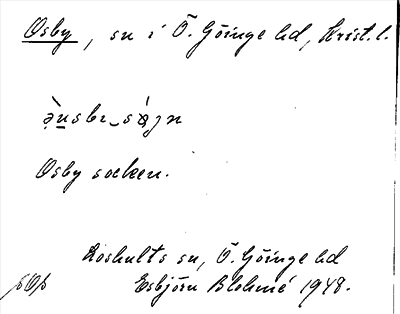 Osby, sn i Ö. Göinge hd, Krist. l.
Osby socken.
Loshults sn, Ö. Göinge hd
Esbjörn Blohmé 1948.